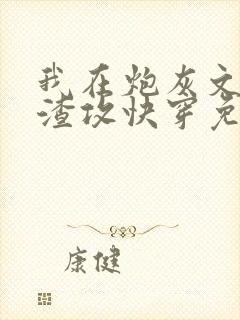 我在炮灰文
渣攻快穿免
康健